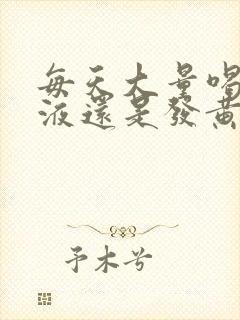 每天大量喝
液還是發黃
予木兮